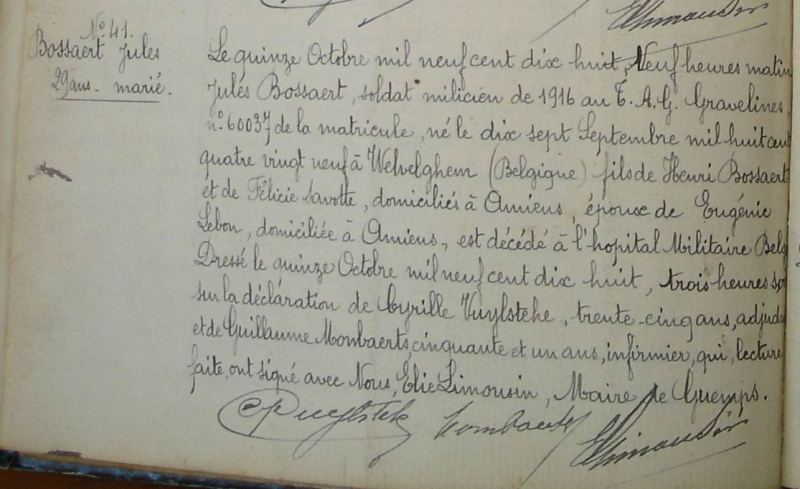 Elimousin
N° 41.
Bossaert Jules
29 ans - marié.
Le quinze Octobre mil neuf cent dix huit, Neuf heures matin
Jules Bossaert, soldat milicien de 1916 au T. A. G. Gravelines,
n° 60037 de la matricule, né le dix sept Septembre mil huit cent
quatre vingt neuf à Welvelghem (Belgique) fils de Henri Bossaert
et de Félicie Savotte, domiciliés à Amiens, époux de Eugénie
Lebon, domiciliée à Amiens, est décédé à l'hopital Militaire Belg
Dressé le quinze Octobre mil neuf cent dix huit, trois heures soi
sur la déclaration de Cyrille Vuylsteke, trente-cinq ans, adjuda
et de Guillaume Mombaerts cinquante et un ans, infirmier, qui, lecture
faite, ont signé avec Nous, Élie Limousin, Maire de Guemps.
CVuylstek Mombaerts Elimousin